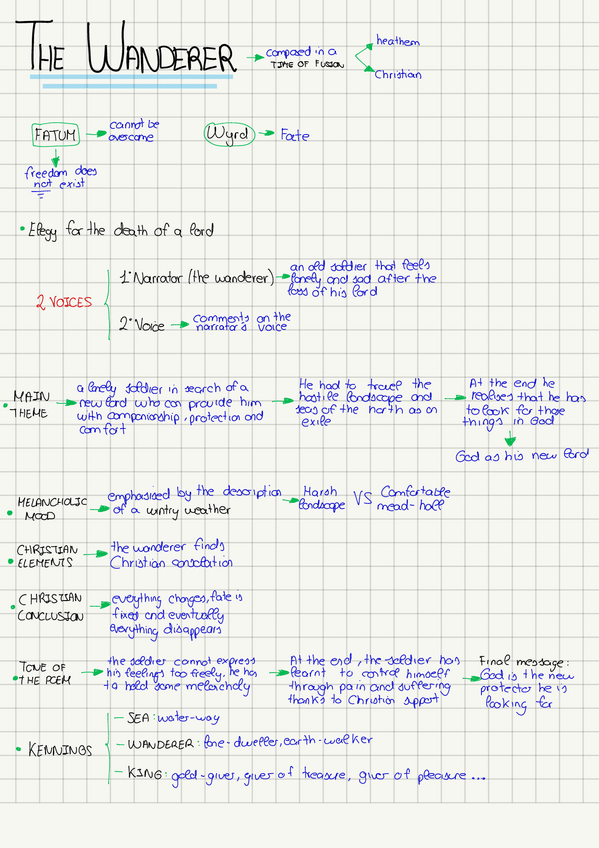 THE WANDERER
composed in a
TIME OF FUSION
heathem
Christian
FATUM
cannot be
overcome
Wyrd
Fate
freedom does
not exist
• Elegy for the death of a lord
2 VOICES
1° Narrator (the wanderer)
an old soldier that feels
lonely and sad after the
loss of his lord
2° Voice
comments on the
narrator's voice
• MAIN
THEME
a lonely soldier in search of a
new lord who can provide him
with companionship, protection and
comfort
He had to travel the
hostile landscape and
seas of the north as an
exile
At the end he
realises that he has
to look for those
things in God
God as his new lord
• MELANCHOLIC
MOOD
emphasised by the description
of a wintry weather
Harsh
landscape
VS
Comfortable
mead-hall
• CHRISTIAN
ELEMENTS
the wanderer finds
Christian consolation
• CHRISTIAN
CONCLUSION
everything changes, fate is
fixed and eventually
everything disappears
• TONE OF
THE POEM
the soldier cannot express
his feelings too freely, he has
to hold some melancholy
At the end, the soldier has
learnt to control himself
through pain and suffering
thanks to Christian support
Final message:
God is the new
protector he is
looking for
• KENNINGS
– SEA: water-way
– WANDERER: lone-dweller, earth-walker
– KING: gold-giver, giver of treasure, giver of pleasure...